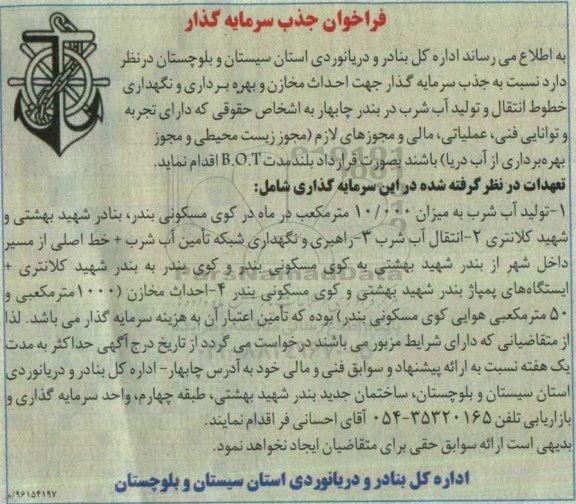 فراخوان جذب سرمایه گذار
به اطلاع می رساند اداره کل بنادر و دریانوردی استان سیستان و بلوچستان درنظر
دارد نسبت به جذب سرمایه گذار جهت احداث مخازن و بهره برداری و نگهداری
خطوط انتقال و تولید آب شرب در بندر چابهار به اشخاص حقوقی که دارای تجربه
و توانایی فنی، عملیاتی، مالی و مجوزهای لازم (مجوز زیست محیطی و مجوز
بهره‌برداری از آب دریا) باشند بصورت قرارداد بلندمدت B.O.T اقدام نماید.
تعهدات در نظر گرفته شده در این سرمایه گذاری شامل:
۱-تولید آب شرب به میزان ۱۰/۰۰۰ مترمکعب در ماه در کوی مسکونی بندر، بنادر شهید بهشتی و
شهید کلانتری ۲-انتقال آب شرب ۳-راهبری و نگهداری شبکه تأمین آب شرب + خط اصلی از مسیر
داخل شهر از بندر شهید بهشتی به کوی مسکونی بندر و کوی بندر به بندر شهید کلانتری +
ایستگاه‌های پمپاژ بندر شهید بهشتی و کوی مسکونی بندر ۴-احداث مخازن (۱۰۰۰مترمکعبی و
۵۰ مترمکعبی هوایی کوی مسکونی بندر) بوده که تأمین اعتبار آن به هزینه سرمایه گذار می باشد. لذا
از متقاضیانی که دارای شرایط مزبور می باشند درخواست می گردد از تاریخ درج آگهی حداکثر به مدت
یک هفته نسبت به ارائه پیشنهاد و سوابق فنی و مالی خود به آدرس چابهار- اداره کل بنادر و دریانوردی
استان سیستان و بلوچستان، ساختمان جدید بندر شهید بهشتی، طبقه چهارم، واحد سرمایه گذاری و
بازاریابی تلفن ۳۵۳۲۰۱۶۵-۰۵۴ آقای احسانی فر اقدام نمایند.
بدیهی است ارائه سوابق حقی برای متقاضیان ایجاد نخواهد نمود.
اداره کل بنادر و دریانوردی استان سیستان و بلوچستان
۹۶۱۵۴۱۹۷/م